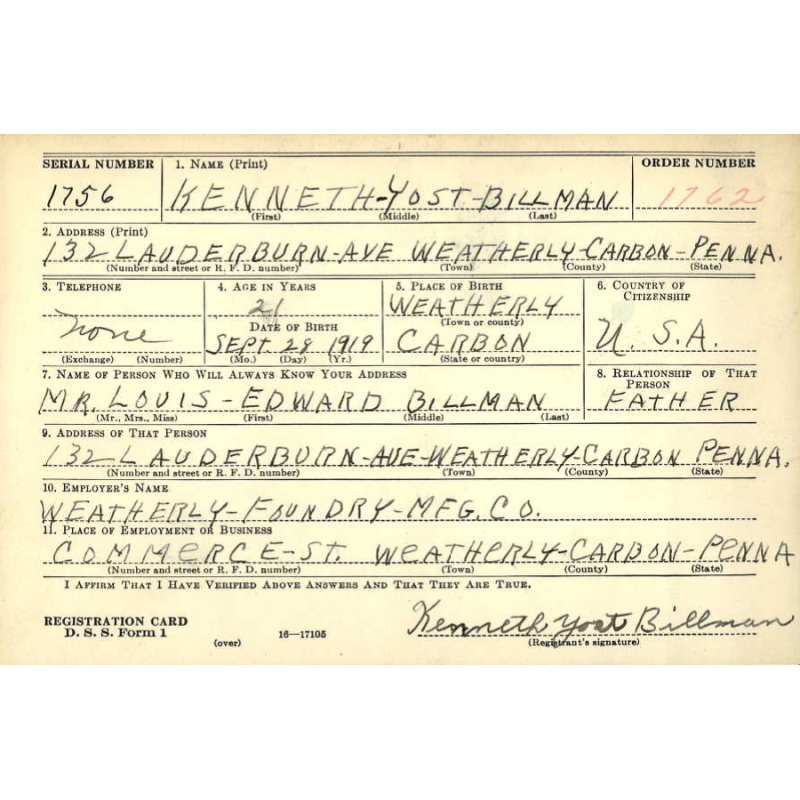 SERIAL NUMBER 1. NAME (Print) ORDER NUMBER
1756 KENNETH-YOST-BILLMAN 1762
(First) (Middle) (Last)
2. ADDRESS (Print)
132 LAUDERBURN-AVE WEATHERLY-CARBON-PENNA.
(Number and street or R. F. D. number) (Town) (County) (State)
3. TELEPHONE 4. AGE IN YEARS 5. PLACE OF BIRTH 6. COUNTRY OF CITIZENSHIP
21 WEATHERLY
DATE OF BIRTH (Town or county)
None SEPT. 28 1919 CARBON U.S.A.
(Exchange) (Number) (Mo.) (Day) (Yr.) (State or country)
7. NAME OF PERSON WHO WILL ALWAYS KNOW YOUR ADDRESS 8. RELATIONSHIP OF THAT PERSON
MR. LOUIS-EDWARD BILLMAN FATHER
(Mr., Mrs., Miss) (First) (Middle) (Last)
9. ADDRESS OF THAT PERSON
132 LAUDERBURN-AVE-WEATHERLY-CARBON PENNA.
(Number and street or R. F. D. number) (Town) (County) (State)
10. EMPLOYER'S NAME
WEATHERLY-FOUNDRY-MFG. CO.
11. PLACE OF EMPLOYMENT OR BUSINESS
COMMERCE-ST. WEATHERLY-CARBON-PENNA
(Number and street or R. F. D. number) (Town) (County) (State)
I AFFIRM THAT I HAVE VERIFIED ABOVE ANSWERS AND THAT THEY ARE TRUE.
REGISTRATION CARD Kenneth Yost Billman
D. S. S. Form 1 (over) 16—17105 (Registrant's signature)